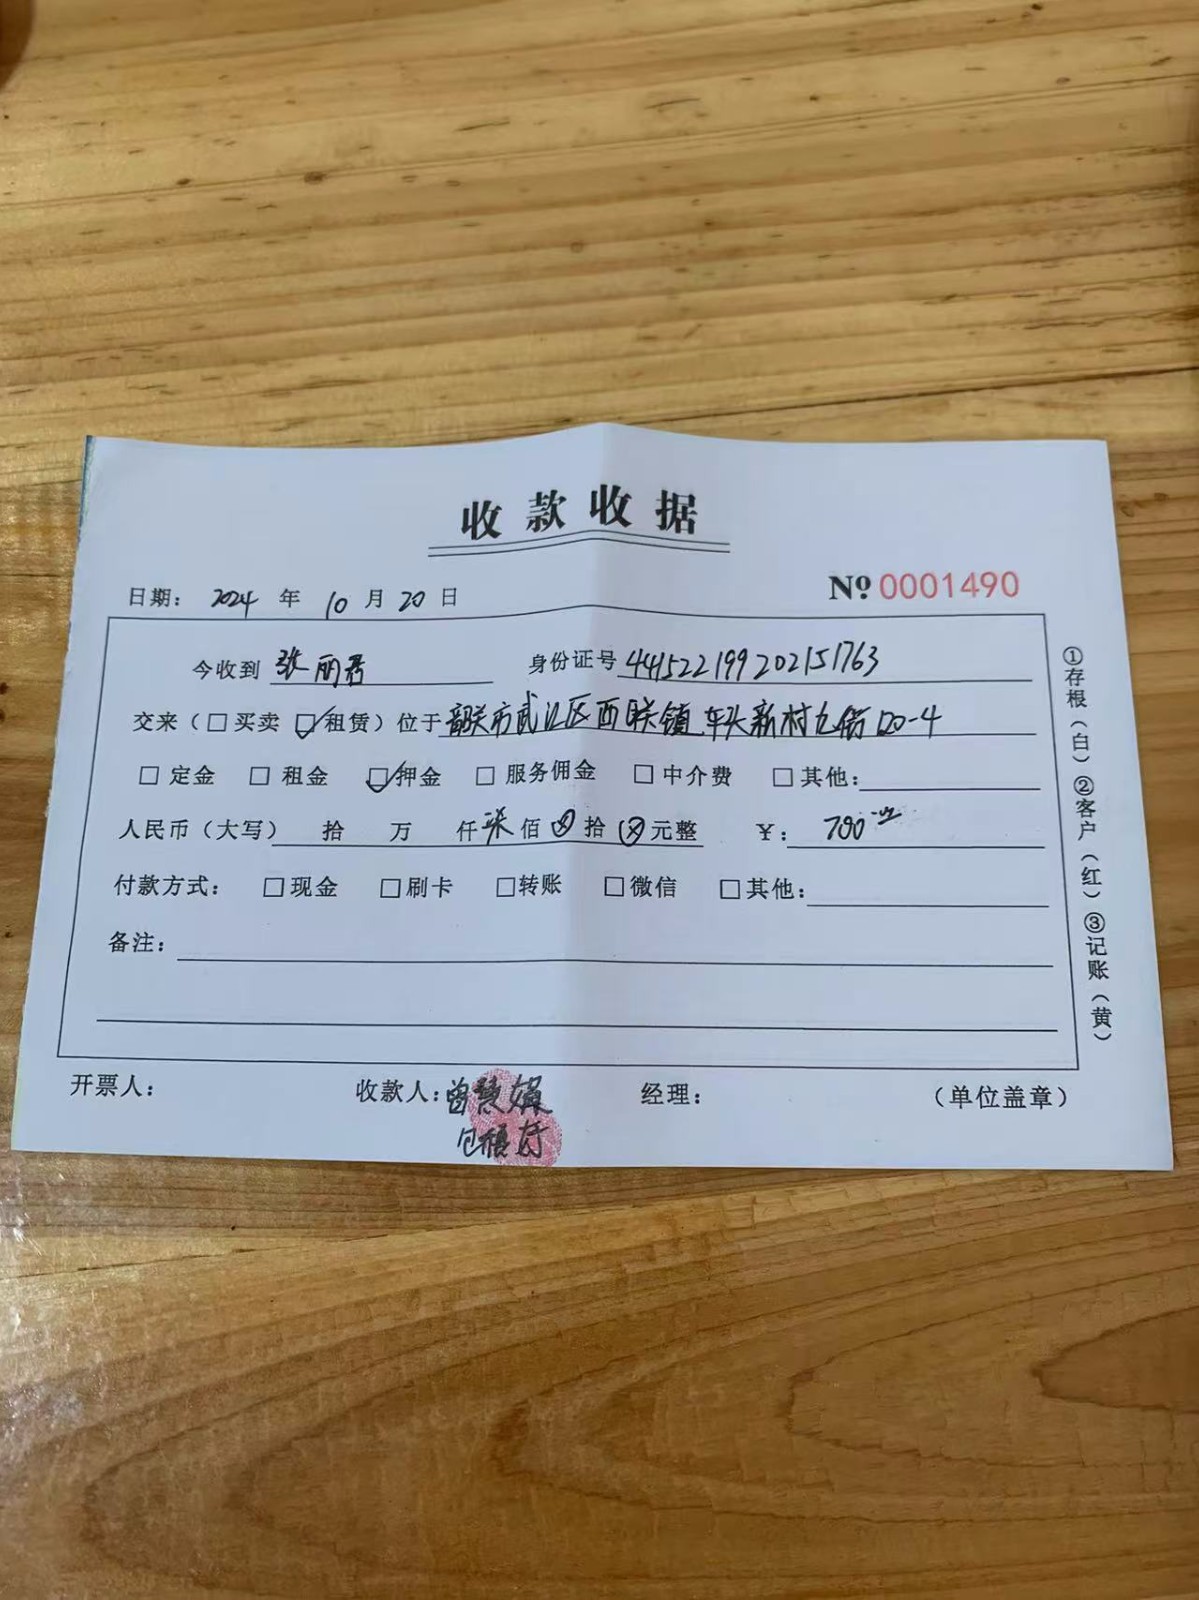 收款收据
日期： 2024 年 10 月 20 日 Nº 0001490
今收到 张丽君 身份证号 441522199202151763
交来（□买卖 ☑租赁）位于 韶关市武江区西联镇车头新村九街120-4
□ 定金 □ 租金 ☑押金 □ 服务佣金 □ 中介费 □ 其他：
人民币（大写） 拾 万 仟 柒 佰 ⊗ 拾 ⊗ 元整 ¥： 700
付款方式： □ 现金 □ 刷卡 □ 转账 □ 微信 □ 其他：
备注：
开票人： 收款人： 曾慧 经理： （单位盖章）
①存根（白）②客户（红）③记账（黄）